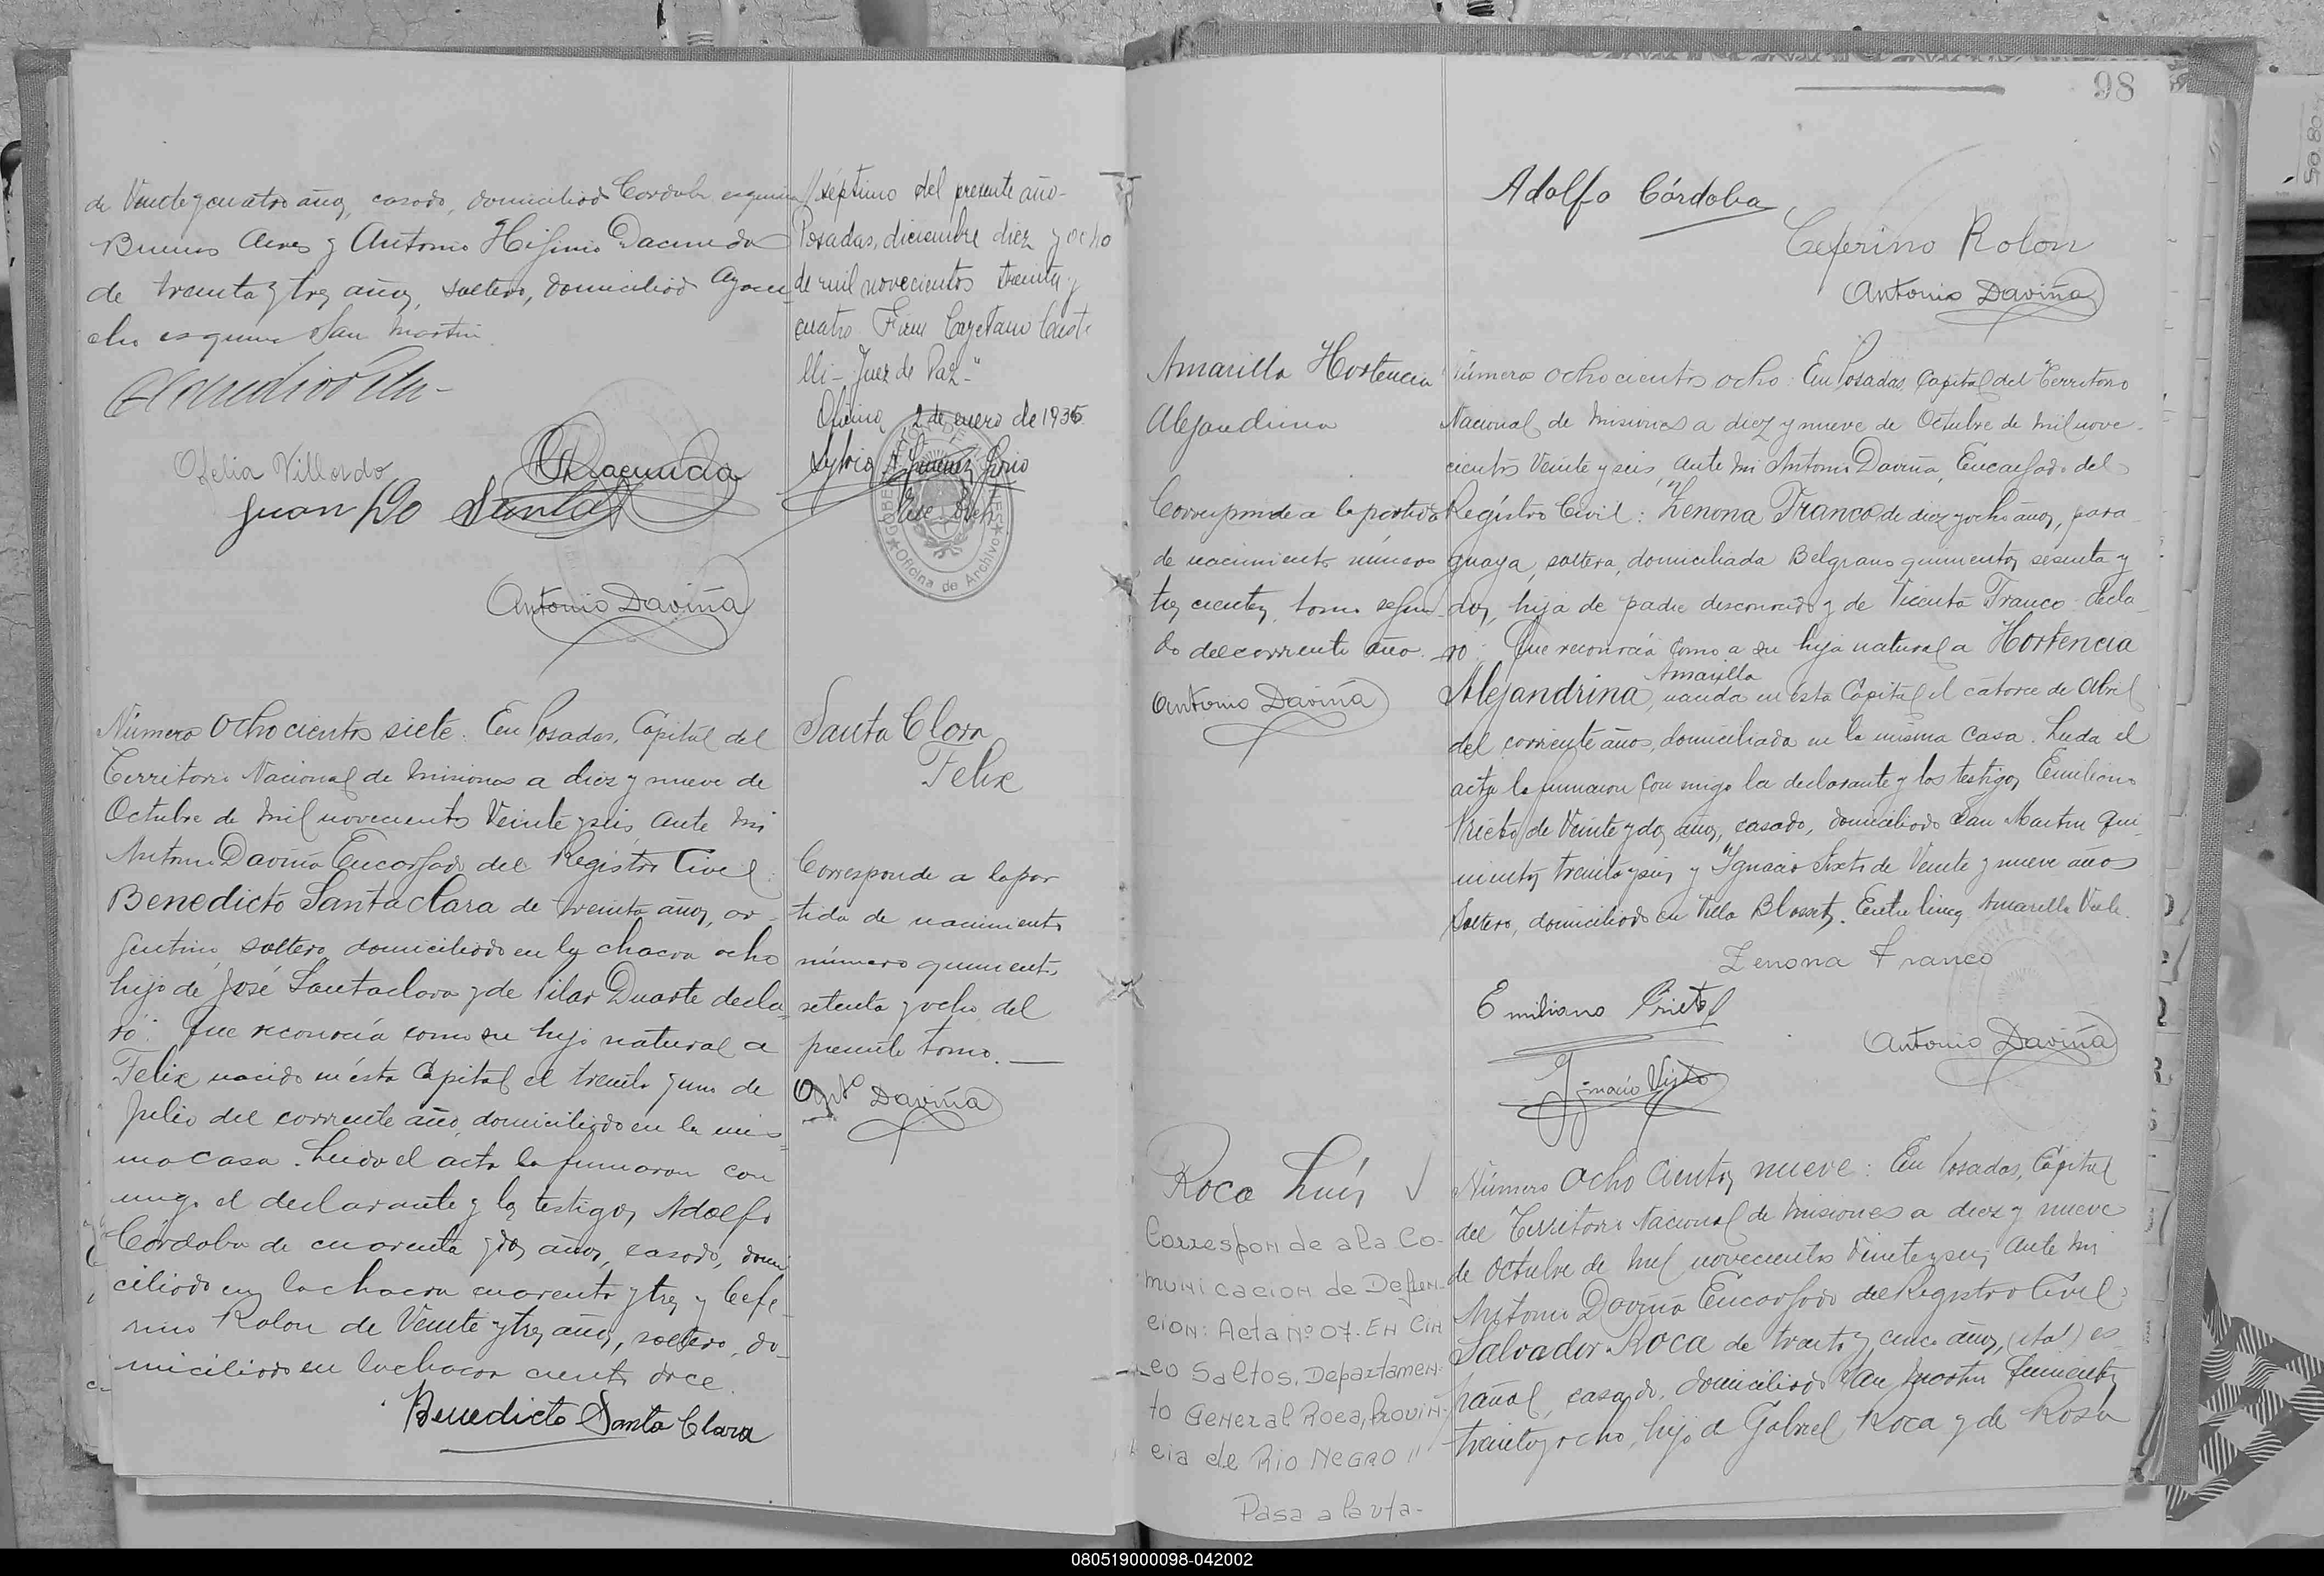 de Veinte y cuatro años, casado, domiciliado Cordoba esquina
Buenos Aires y Antonio Higinio Dacunda
de treinta y tres años, soltero, domiciliado Ayacu
cho esquina San Martin.
Ofelia Villordo
Juan Do
Antonio Daviña
// séptimo del presente año-
Posadas, diciembre diez y ocho
de mil novecientos treinta y
cuatro. Firm Cayetano Cast
lli - Juez de Paz -"
Oficina, 2 de enero de 1935.
Oficina de Archivo
Número Ochocientos siete: En Posadas, Cápital del
Territorio Nacional de Misiones a diez y nueve de
Octubre de mil novecientos Veinte y seis, ante mi
Antonio Daviña Encargado del Registro Civil:
Benedicto Santaclara de treinta años, ar-
gentino, soltero, domiciliado en la chacra ocho
hijo de José Santaclara y de Pilar Duarte decla
ró: Que reconocía como su hijo natural a
Felix nacido en ésta Cápital el treinta y uno de
Julio del corriente año, domiciliado en la mis-
ma casa. Leida el acta la firmaron con
migo el declarante y los testigos Adolfo
Córdoba de cuarenta y dos años, casado, domi
ciliado en la chacra cuarenta y tres y Cefe-
rino Rolon de Veinte y tres años, soltero, do-
miciliado en la chacra ciento doce.
Benedicto Santa Clara
Santa Clara
Felix
Corresponde a la par
tida de nacimiento
número quinientos
setenta y ocho del
presente tomo. —
Antº Daviña
98
Adolfo Córdoba
Ceferino Rolon
Antonio Daviña
Amarilla Hortencia
Alejandrina
Corresponde a la partida
de nacimiento número
trescientos, tomo segun
do del corriente año.
Antonio Daviña
Número ochocientos ocho: En Posadas, Capital del Territorio
Nacional de Misiones a diez y nueve de Octubre de mil nove-
cientos Veinte y seis, ante mi Antonio Daviña, Encargado del
Registro Civil: Zenona Franco de diez y ocho años, para-
guaya, soltera, domiciliada Belgrano quinientos sesenta y
dos, hija de padre desconocido y de Vicenta Franco decla-
ró: Que reconocía como a su hija natural a Hortencia
Amarilla
Alejandrina, nacida en ésta Capital el catorce de Abril
del corriente año, domiciliada en la misma casa. Leida el
acta la firmaron conmigo la declarante y los testigos Emiliano
Prieto de Veinte y dos años, casado, domiciliado San Martin qui-
nientos treinta y seis y Ignacio Sixto de Veinte y nueve años
soltero, domiciliado en Villa Blosset. Entre linea Amarilla Vale.
Zenona Franco
Emiliano Prieto
Antonio Daviña
Roca Luís
Correspon de a la Co-
municacion de Defun-
cion: Acta Nº 07. En Cin
co Saltos. Departamen-
to General Roca, Provin-
cia de Rio Negro //
Pasa a la vta-
Número Ochocientos nueve: En Posadas, Cápital
del Territorio Nacional de Misiones a diez y nueve
de Octubre de mil novecientos Veinte y seis, ante mi
Antonio Daviña Encargado del Registro Civil:
Salvador Roca de treinta y cinco años, (ital) es-
pañol, casado, domiciliado San Martin quinientos
treinta y ocho, hijo de Gabriel Roca y de Rosa
080519000098-042002